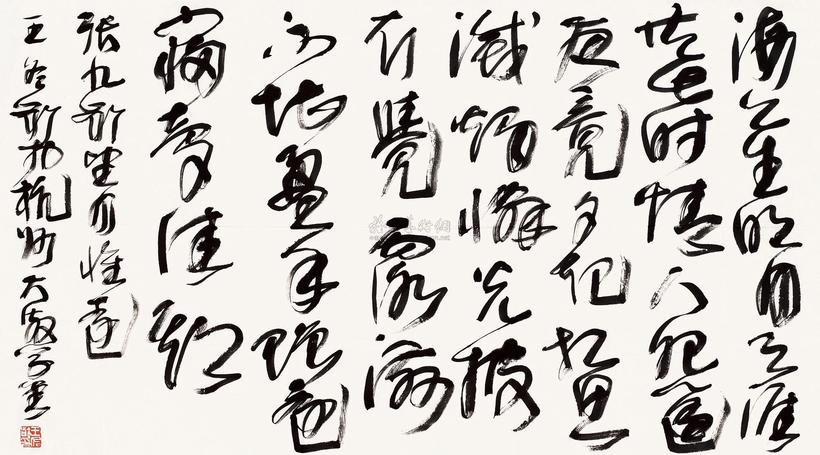 海上生明月天涯
共此时情人怨遥
夜竟夕起相思
灭烛怜光披
衣觉露滋
不堪盈手赠还
寝梦佳期
张九龄望月怀远
王冬龄于杭州大散草堂